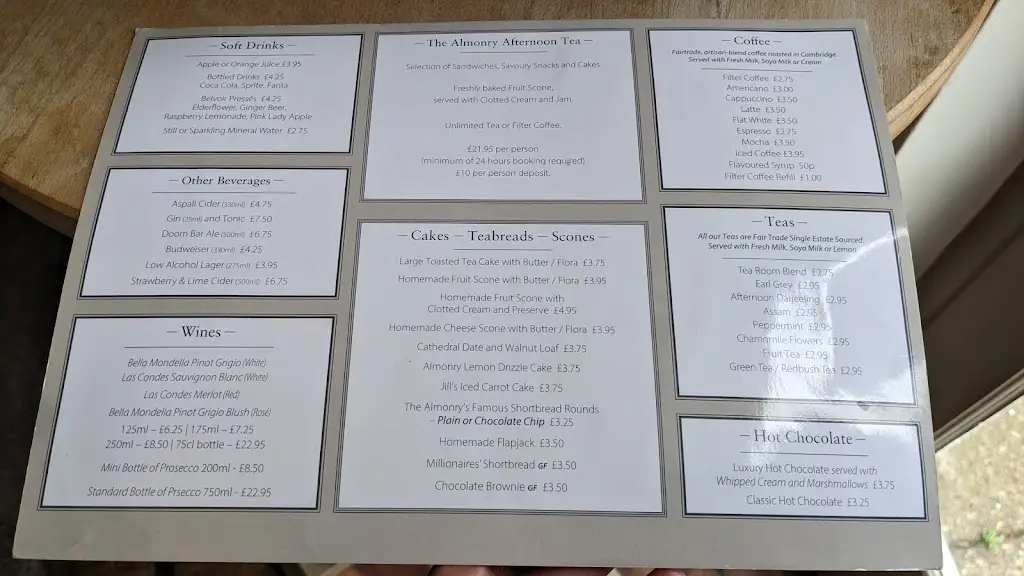 — Soft Drinks —
Apple or Orange Juice £3.95
Bottled Drinks £4.25
Coca Cola, Sprite, Fanta
Belvoir Pressés £4.25
Elderflower, Ginger Beer,
Raspberry Lemonade, Pink Lady Apple
Still or Sparkling Mineral Water £2.75
— Other Beverages —
Aspall Cider (330ml) £4.75
Gin (25ml) and Tonic £7.50
Doom Bar Ale (500ml) £6.75
Budweiser (330ml) £4.25
Low Alcohol Lager (275ml) £3.95
Strawberry & Lime Cider (500ml) £6.75
— Wines —
Bella Mondella Pinot Grigio (White)
Las Condes Sauvignon Blanc (White)
Las Condes Merlot (Red)
Bella Mondella Pinot Grigio Blush (Rosé)
125ml – £6.25 | 175ml – £7.25
250ml – £8.50 | 75cl bottle – £22.95
Mini Bottle of Prosecco 200ml - £8.50
Standard Bottle of Prsecco 750ml - £22.95
— The Almonry Afternoon Tea —
Selection of Sandwiches, Savoury Snacks and Cakes.
Freshly baked Fruit Scone,
served with Clotted Cream and Jam.
Unlimited Tea or Filter Coffee.
£21.95 per person
(minimum of 24 hours booking required)
£10 per person deposit.
— Cakes – Teabreads – Scones —
Large Toasted Tea Cake with Butter / Flora £3.75
Homemade Fruit Scone with Butter / Flora £3.95
Homemade Fruit Scone with
Clotted Cream and Preserve £4.95
Homemade Cheese Scone with Butter / Flora £3.95
Cathedral Date and Walnut Loaf £3.75
Almonry Lemon Drizzle Cake £3.75
Jill's Iced Carrot Cake £3.75
The Almonry's Famous Shortbread Rounds
- Plain or Chocolate Chip £3.25
Homemade Flapjack £3.50
Millionaires' Shortbread GF £3.50
Chocolate Brownie GF £3.50
— Coffee —
Fairtrade, artisan-blend coffee roasted in Cambridge.
Served with Fresh Milk, Soya Milk or Cream
Filter Coffee £2.75
Americano £3.00
Cappuccino £3.50
Latte £3.50
Flat White £3.50
Espresso £2.75
Mocha £3.50
Iced Coffee £3.95
Flavoured Syrup 50p
Filter Coffee Refill £1.00
— Teas —
All our Teas are Fair Trade Single Estate Sourced.
Served with Fresh Milk, Soya Milk or Lemon
Tea Room Blend £2.75
Earl Grey £2.95
Afternoon Darjeeling £2.95
Assam £2.95
Peppermint £2.95
Chamomile Flowers £2.95
Fruit Tea £2.95
Green Tea / Redbush Tea £2.95
— Hot Chocolate —
Luxury Hot Chocolate served with
Whipped Cream and Marshmallows £3.75
Classic Hot Chocolate £3.25